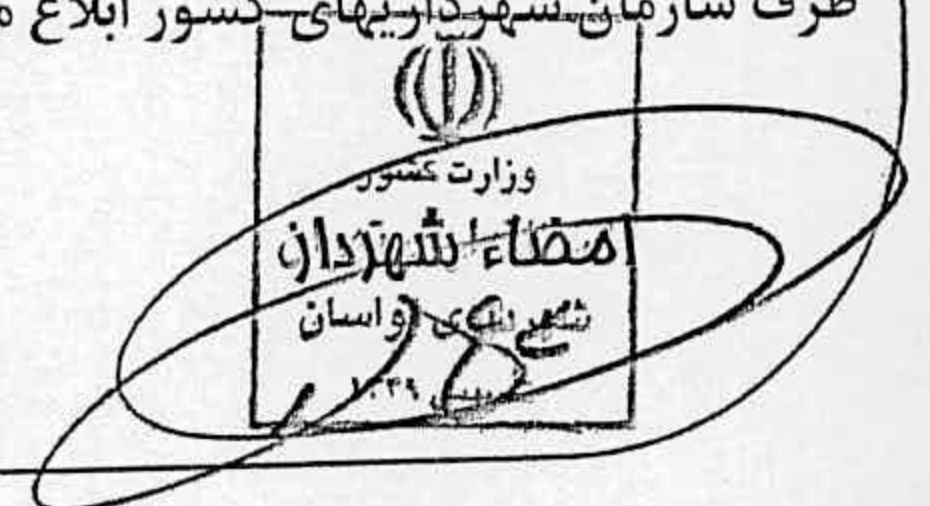 طرف سازمان شهرداریهای کشور ابلاغ
وزارت کشور
امضاء شهردار
شهرداری لواسان
۱۳۴۹